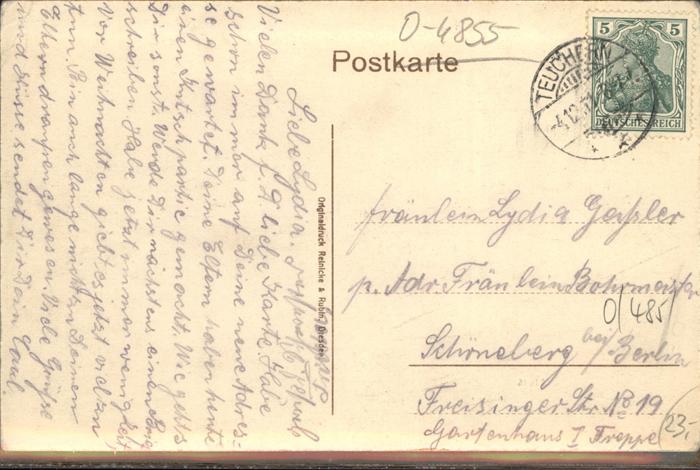 O-4855
Postkarte
5 5
DEUTSCHES REICH
TEUCHERN
4.12.
Originaldruck Reinicke & Rubin, Dresden
Fräulein Lydia Geißler
p. Adr Fräulein Bohrmeister
O/485
Schöneberg bei Berlin
Freisinger Str. No 19
Gartenhaus I Treppe
23,-
Liebe Lydia.
Vielen Dank f. D. liebe Karte. Habe
schon immer auf Deine neue Adres-
se gewartet. Deine Eltern haben heute
einen Kutschpartie gemacht. Wie geht's
Dir sonst. Werde Dir nächstens einen Brief
schreiben. Habe jetzt immer wenig Zeit
Vor Weihnachten giebt es jetzt viel zu
tun. Bin auch lange nicht zu Deinen
Eltern draußen gewesen. Viele Grüße
und Küsse sendet Dir Dein Paul